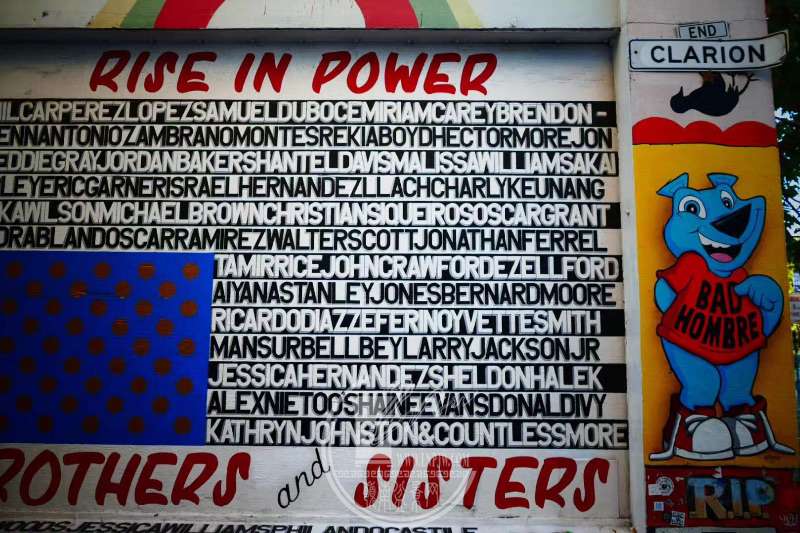 RISE IN POWER
END
CLARION
ILCARPEREZLOPEZSAMUELDUBOCEMIRIAMCAREYBRENDON -
ENNANTONIOZAMBRANOMONTESREKIABOYDHECTORMOREJON
EDDIEGRAYJORDANBAKERSHANTELDAVISMALISSAWILLIAMSAKAI
LEYERICGARNERISRAELHERNANDEZLLACHCHARLYKEUNANG
KAWILSONMICHAELBROWNCHRISTIANSIQUEIROSOSCARGRANT
ORABLANDOSCARRAMIREZWALTERSCOTTJONATHANFERREL
TAMIRRICEJOHNCRAWFORDEZELLFORD
AIYANASTANLEYJONESBERNARDMOORE
RICARDODIAZZEFERINOYVETTESMITH
MANSURBELLBEYLARRYJACKSONJR
JESSICAHERNANDEZSHELDONHALEK
ALEXNIETOOSHAINEEVANSDONALDIVY
KATHRYNJOHNSTON&COUNTLESSMORE
ROTHERS and SISTERS
WOODSJESSICAWILLIAMSPHILANDOCASTILE
BAD
HOMBRE
RIP